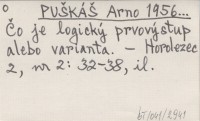 o PUŠKÁŠ Arno 1956...
Čo je logický prvovýstup
alebo varianta. – Horolezec
2, nr 2: 32-38, il.
bT/041/2941